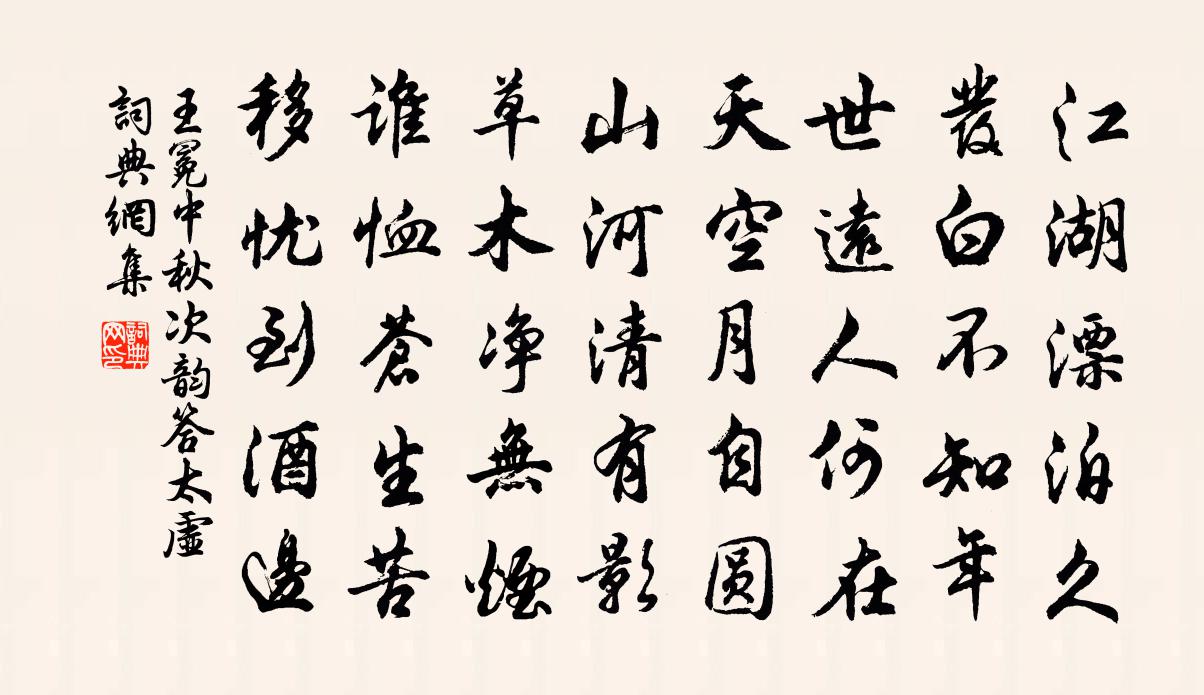 江湖漂泊久
發白不知年
世遠人何在
天空月自圆
山河清有影
草木净無煙
谁恤蒼生苦
移忧到酒邊
王冕中秋次韵答太虚
詞典網集
詞典网印